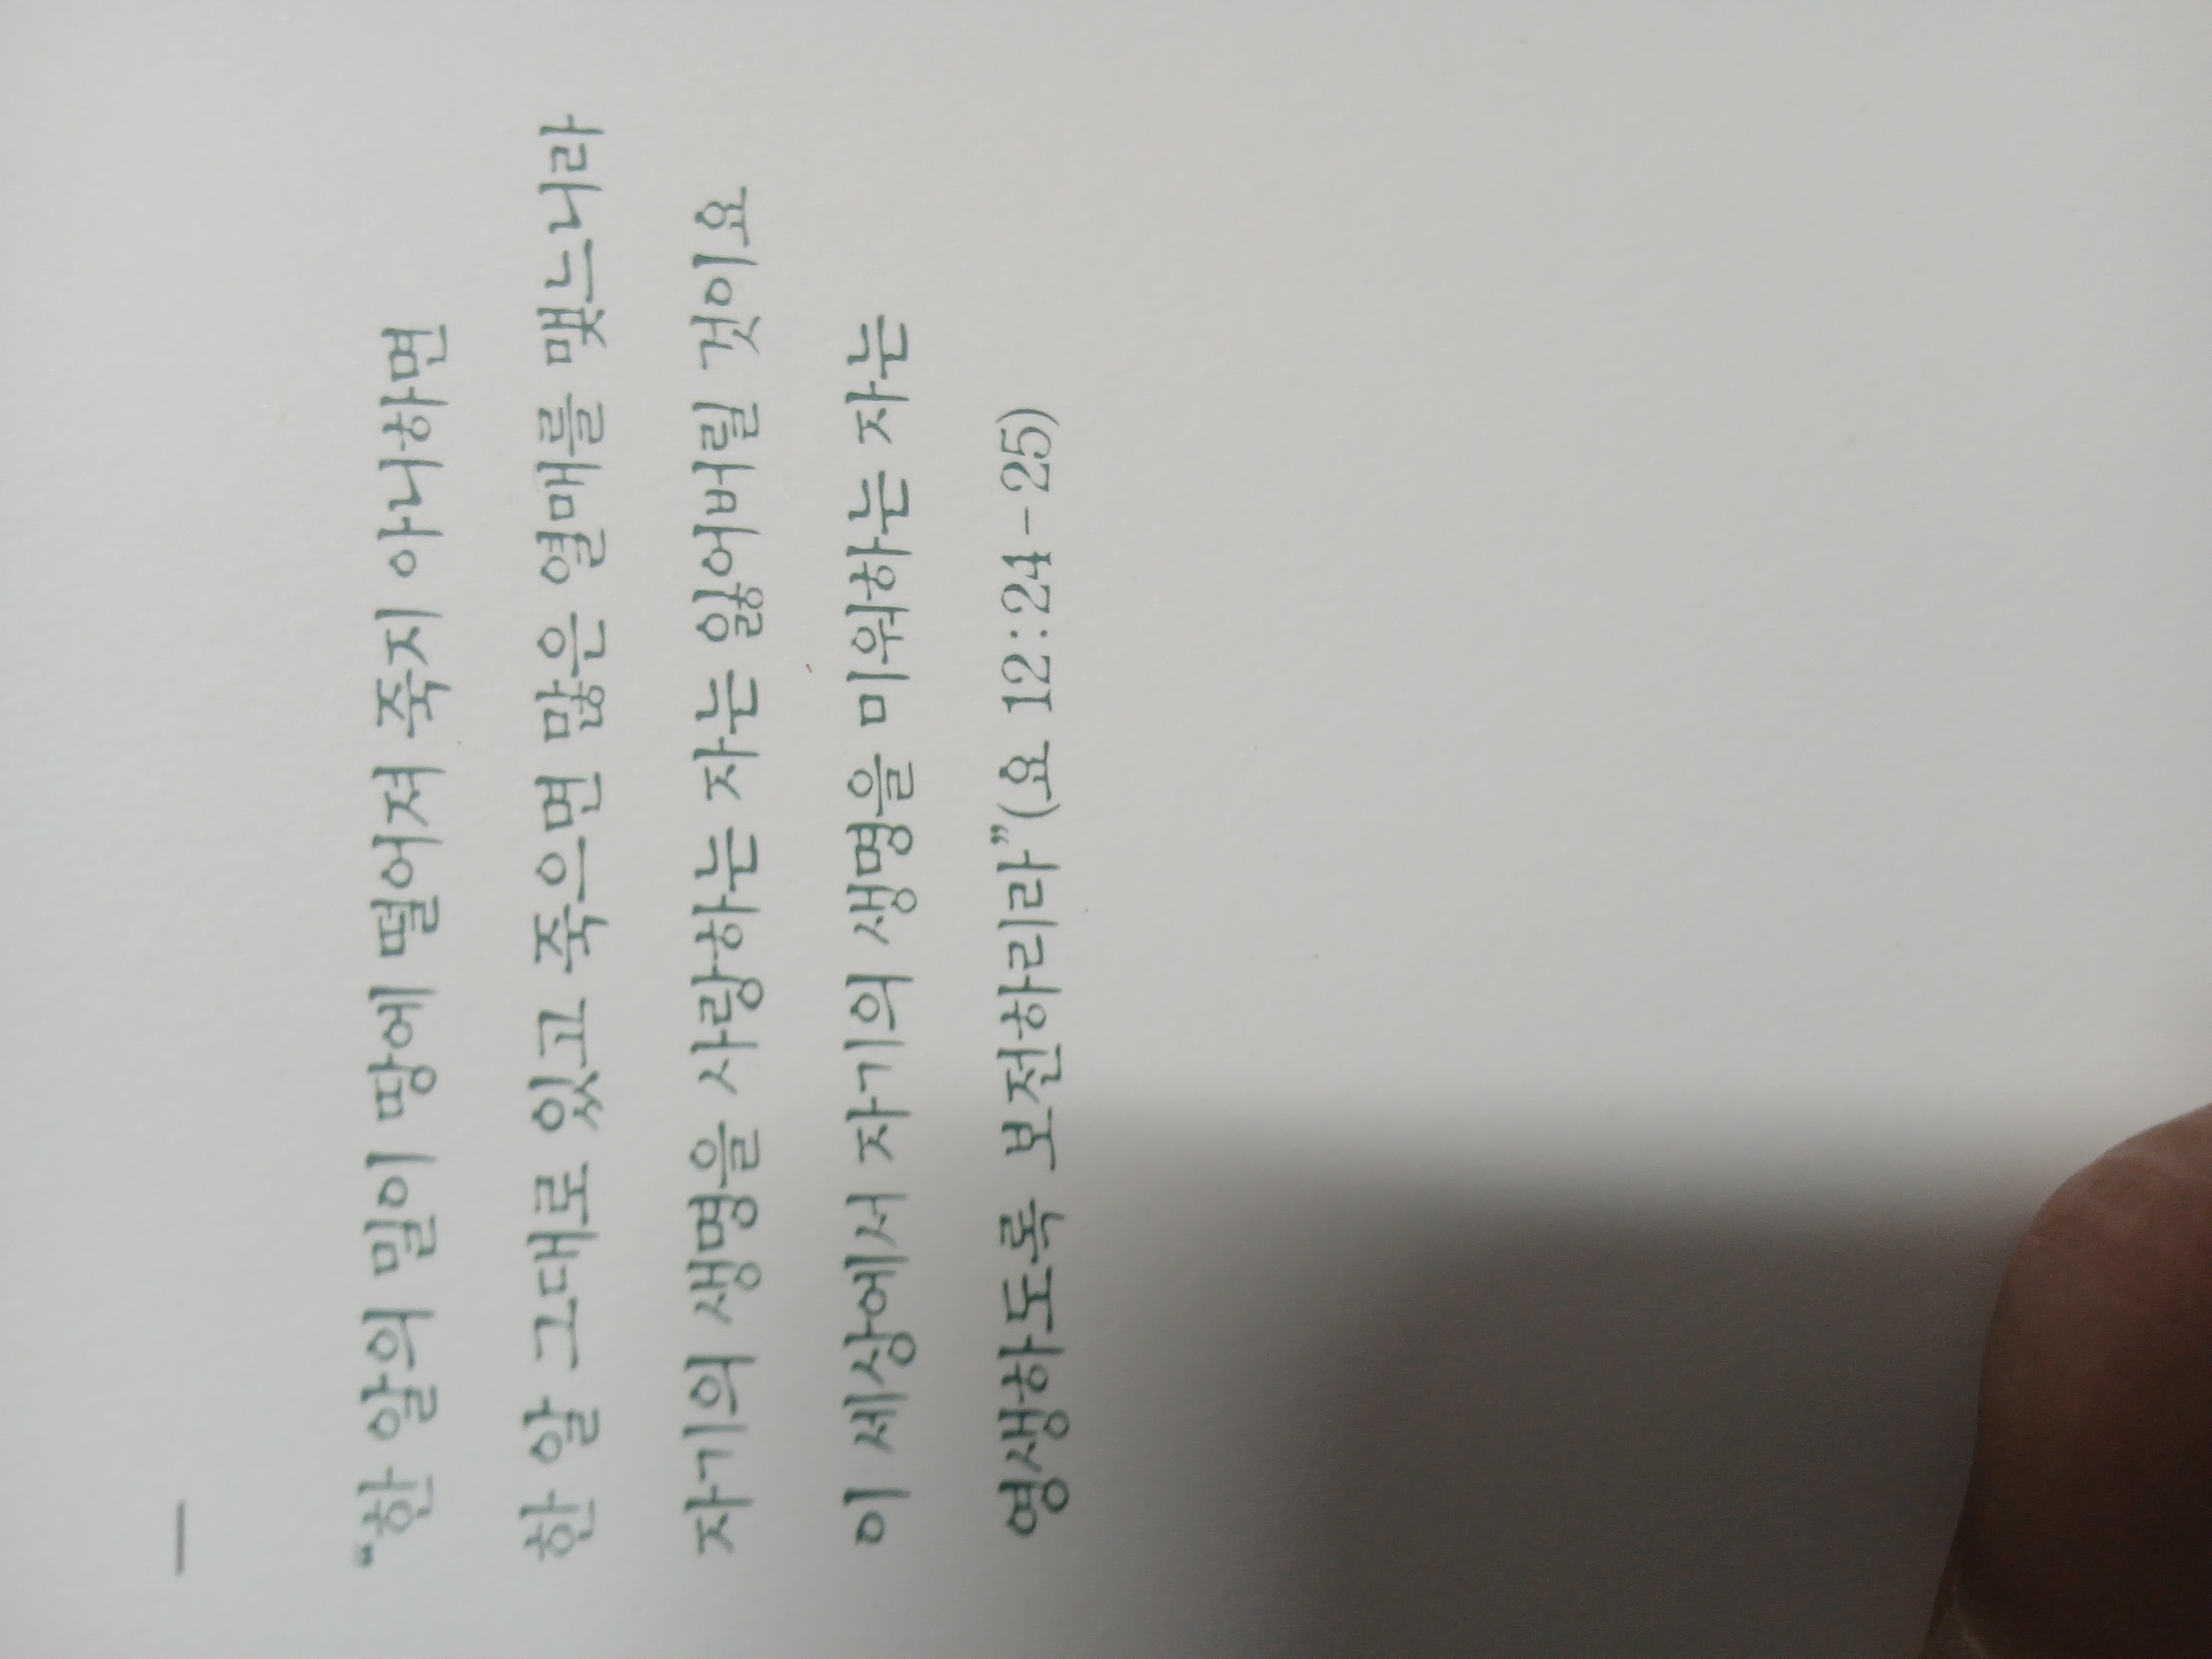 “한 알의 밀이 땅에 떨어져 죽지 아니하면
한 알 그대로 있고 죽으면 많은 열매를 맺느니라
자기의 생명을 사랑하는 자는 잃어버릴 것이요
이 세상에서 자기의 생명을 미워하는 자는
영생하도록 보전하리라”(요 12:24-25)